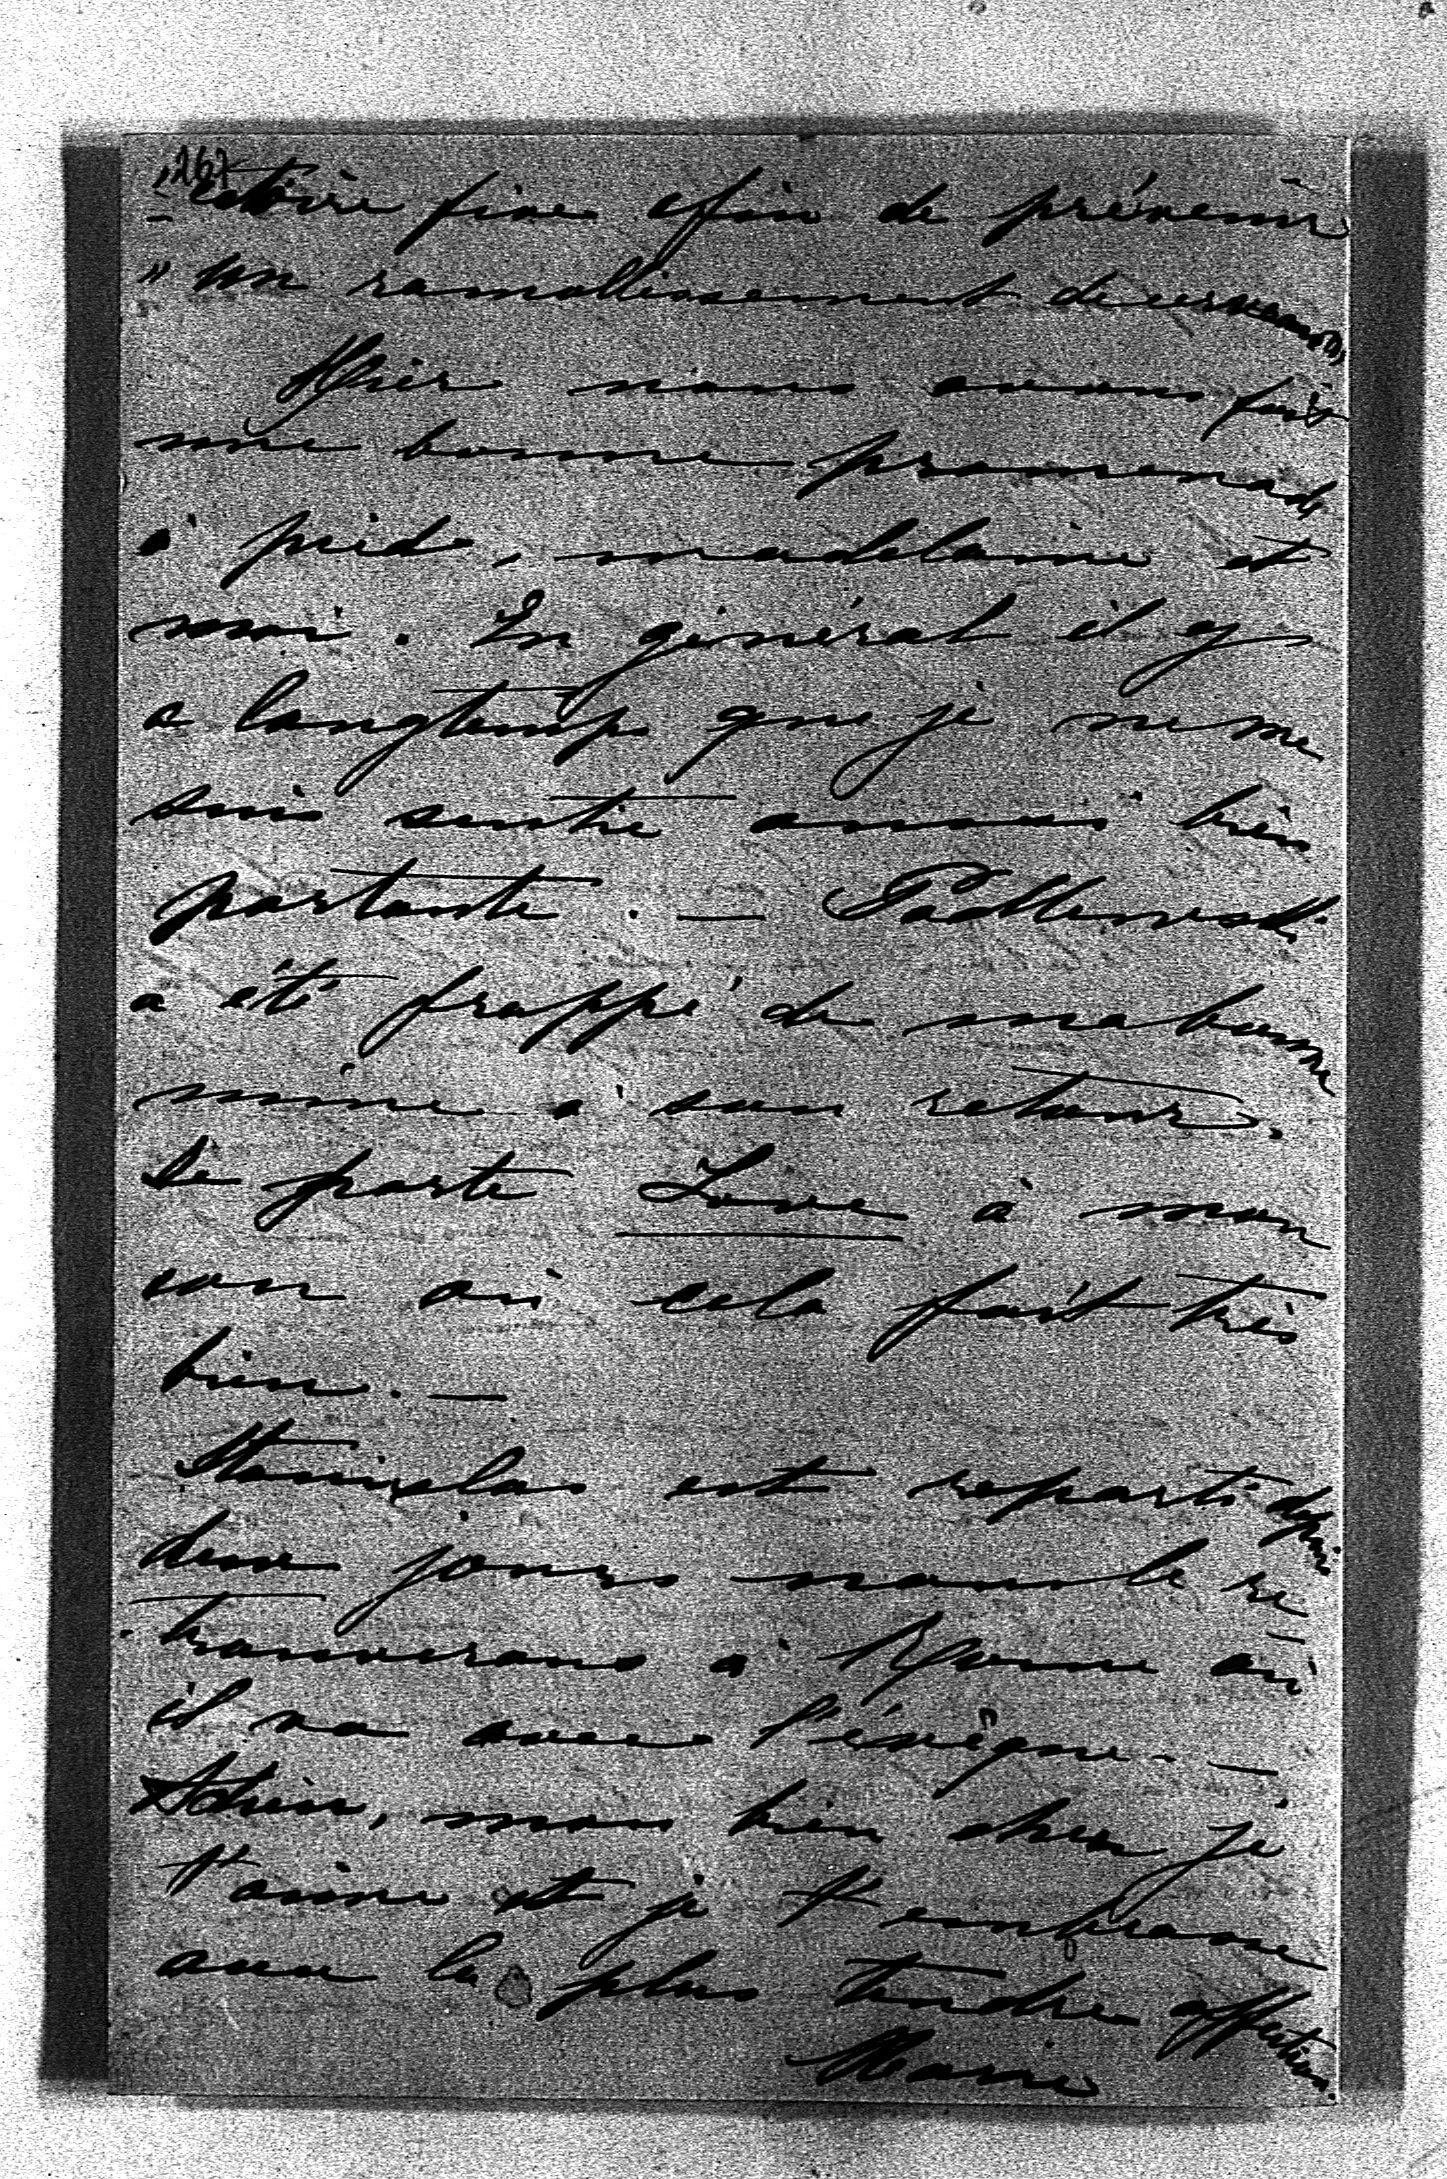 267
"-ctoire fixe afin de prévenir
" un ramollissement du cerveau"
Hier nous avons fait
une bonne promenade
à pied, madelaine et
moi. En général il y
a longtemps que je ne me
suis sentie aussi bien
portante. — Padlewski
a été frappé de ma bonne
mine à son retour.
Je porte Love à mon
cou où cela fait très
bien. —
Stanislas est reparti depuis
deux jours nous le re
-trouverons à Rome où
il va avec l'évêque. —
Adieu, mon bien cher je
t'aime et je t'embrasse
avec la plus tendre affection.
Marie